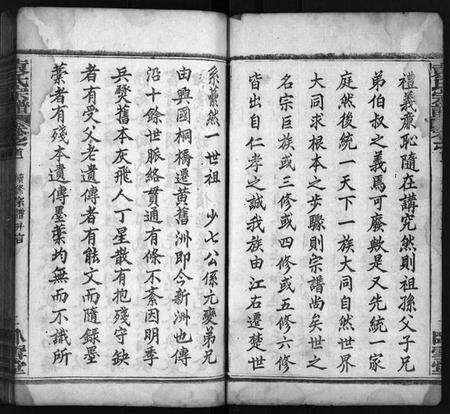 禮義廉恥隨在講究然則祖孫父子兄
弟伯叔之義焉可廢歟是又先統一家
庭然後統一天下一族大同自然世界
大同求根本之步驟則宗譜尚矣世之
名宗巨族或三修或四修或五修六修
皆出自仁孝之誠我族由江右遷楚世
系蕭然一世祖 少七公係元夔弟兄
由興國桐橋遷黃舊洲即今新洲也傳
沿十餘世脈絡貫通有條不紊因明季
兵燹舊本灰飛人丁星散有抱殘守缺
者有受父老遺傳者有能文而隨錄墨
藁者有殘本遺傳墨藁均無而不識所